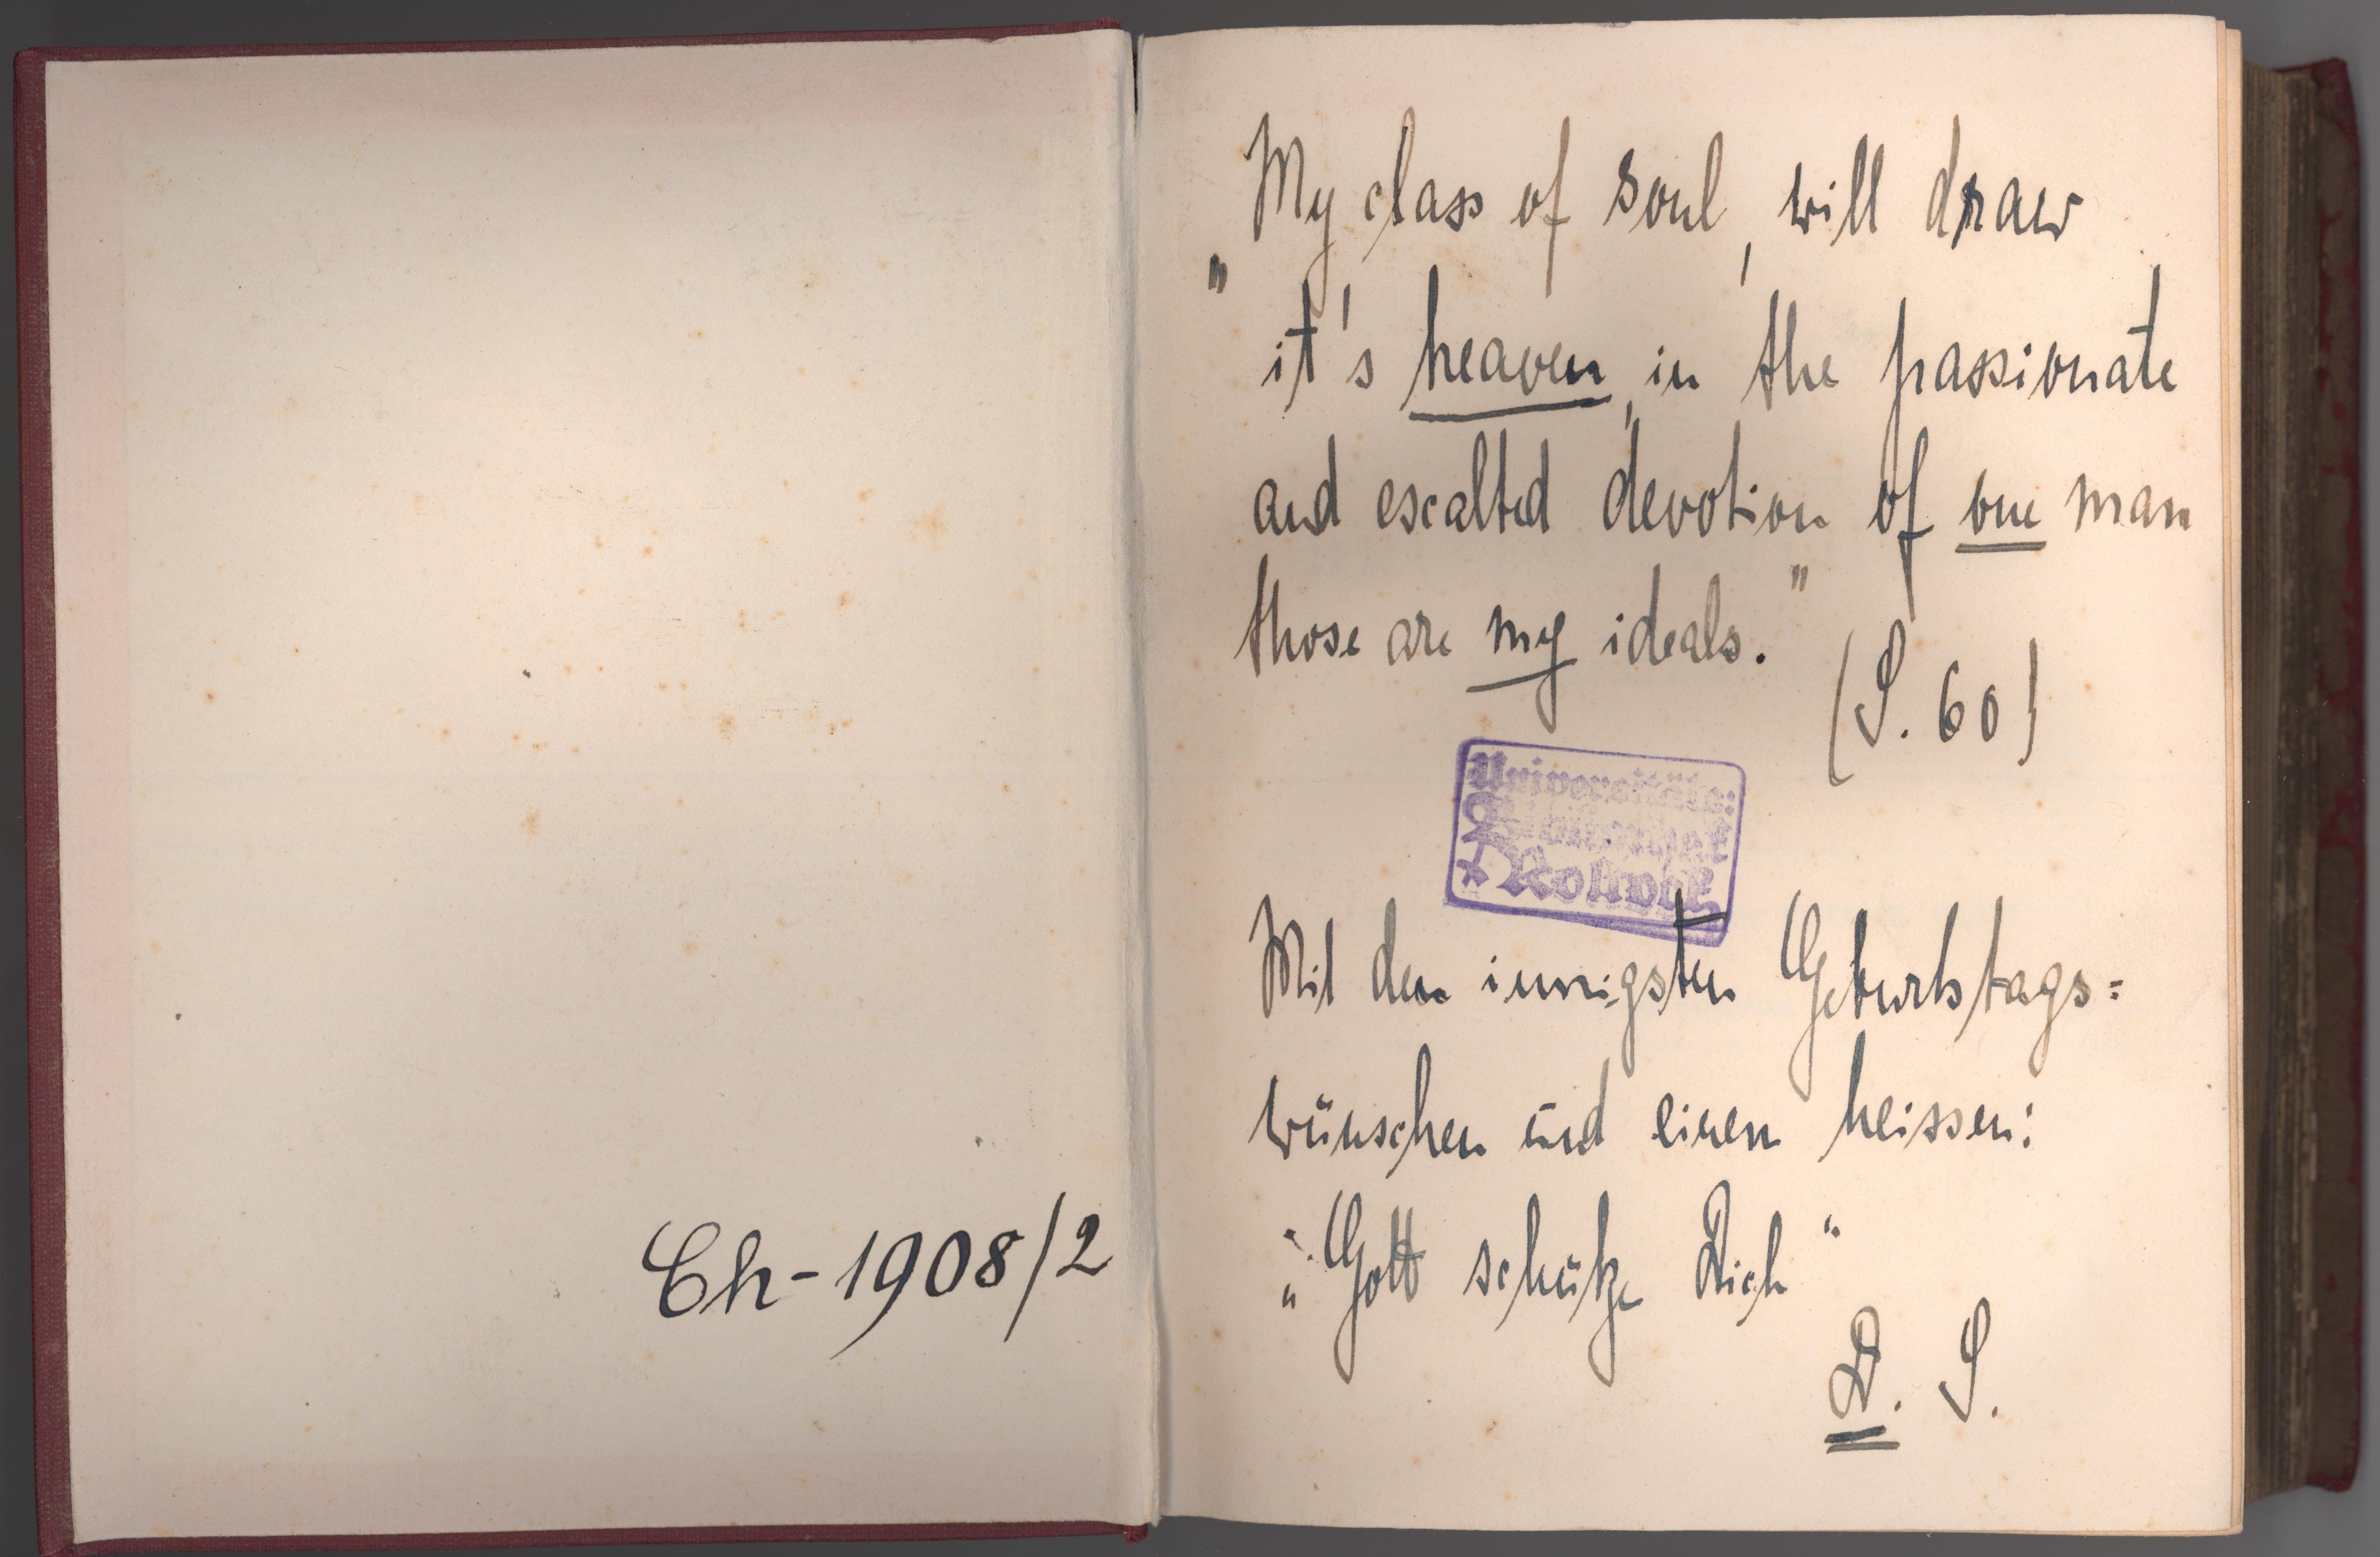 Ch-1908/2
„My class of soul, will draw
it's heaven, in the passionate
and escalted devotion of one man
those are my ideals."
(S. 60)
Universitäts=
Bibliothek
Rostock
Mit den innigsten Geburtstags=
wünschen und einen heissen:
„Gott schütze Dich“
D. S.